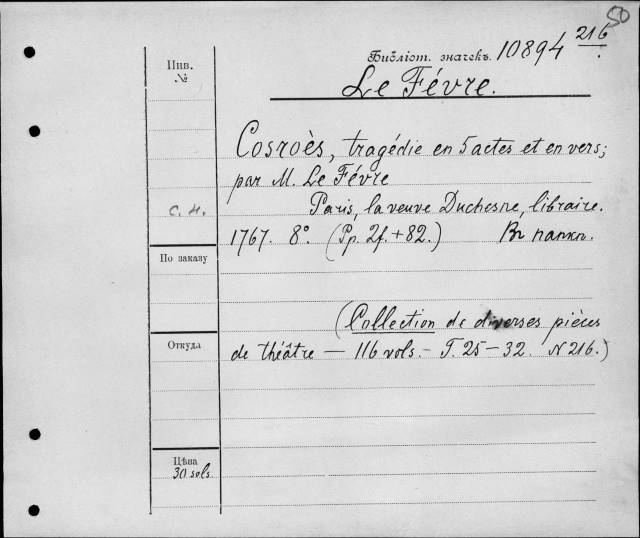 50
216
Библіот. значекъ. 10894
Инв.
№
Le Févre.
Cosroès, tragédie en 5 actes et en vers;
par M. Le Févre
Paris, la veuve Duchesne, libraire.
с. н.
1767. 8°. (Pp. 2f. + 82.) Въ папкѣ.
По заказу
(Collection de diverses pièces
Откуда
de théâtre — 116 vols. — T. 25 — 32. N 216.)
Цѣна
30 sols